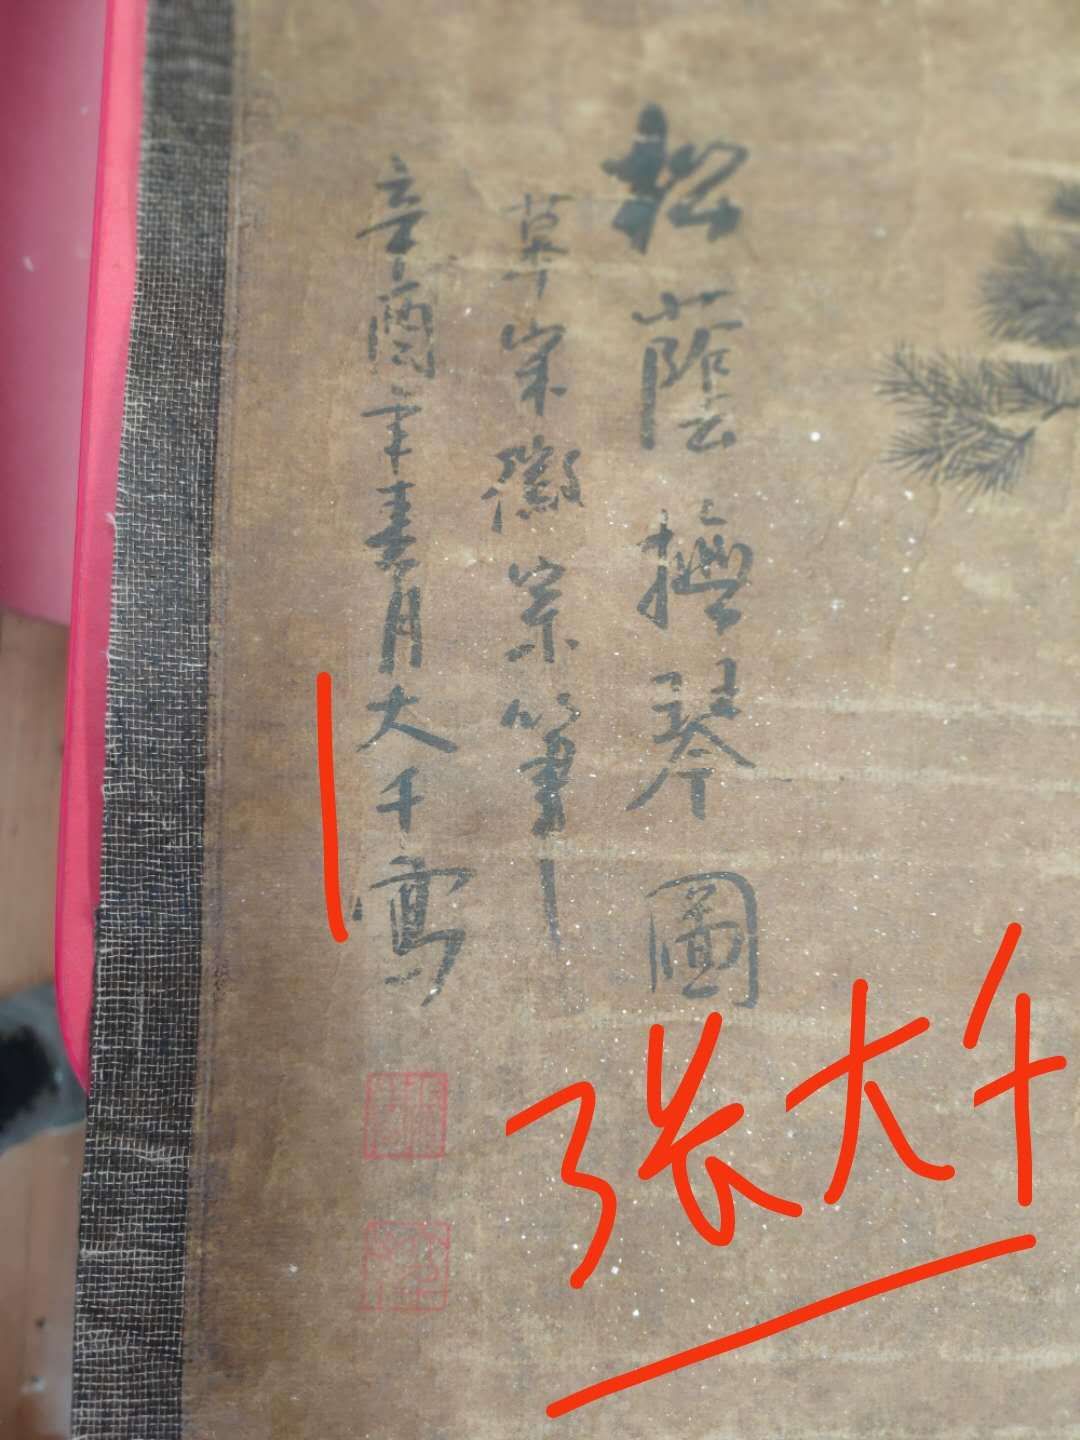 松蔭撫琴圖
摹宋徽宗筆
辛酉年春月大千寫
张大千